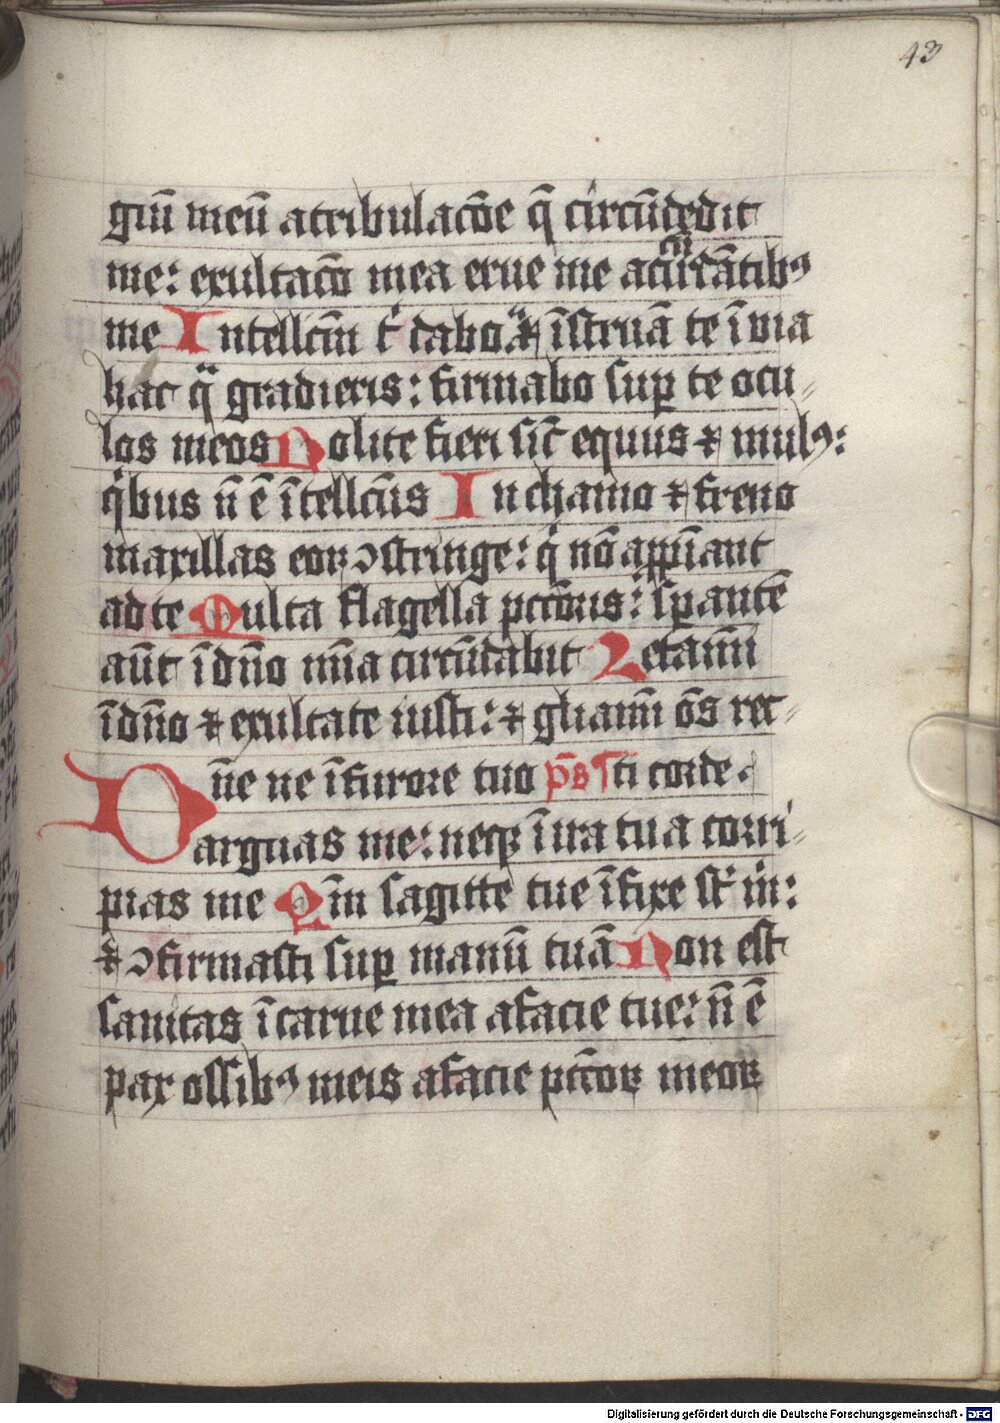 43
giū meū atribulacōe q̄ circūdedit
me: exultacō mea erue me acircūdātibꝰ
me Intellcm̄ t' dabo ꝛ īstruā te ī via
hac q̄ gradieris: firmabo sup te ocu-
los meos Nolite fieri sic̄ equus ⁊ mulꝰ:
qͥbus n̄ ē ītellcūs In chamo ⁊ freno
maxillas eoꝝ ꝯstringe: qͥ nō appīant
ad te Multa flagella pctōris: sꝑantē
aūt ī dn̄o mīa circūdabit Letamī
ī dn̄o ⁊ exultate iusti: ⁊ gliamī ōs rec-
Dn̄e ne ī furore tuo ps̄ ti corde.
arguas me: neqꝫ ī ira tua corri-
pias me Qm̄ sagitte tue īfixe st' m̄:
⁊ ꝯfirmasti sup manū tuā Non est
sanitas ī carne mea afacie tue: n̄ ē
pax ossibꝰ meis afacie pctōꝝ meoꝝ
Digitalisierung gefördert durch die Deutsche Forschungsgemeinschaft - DFG